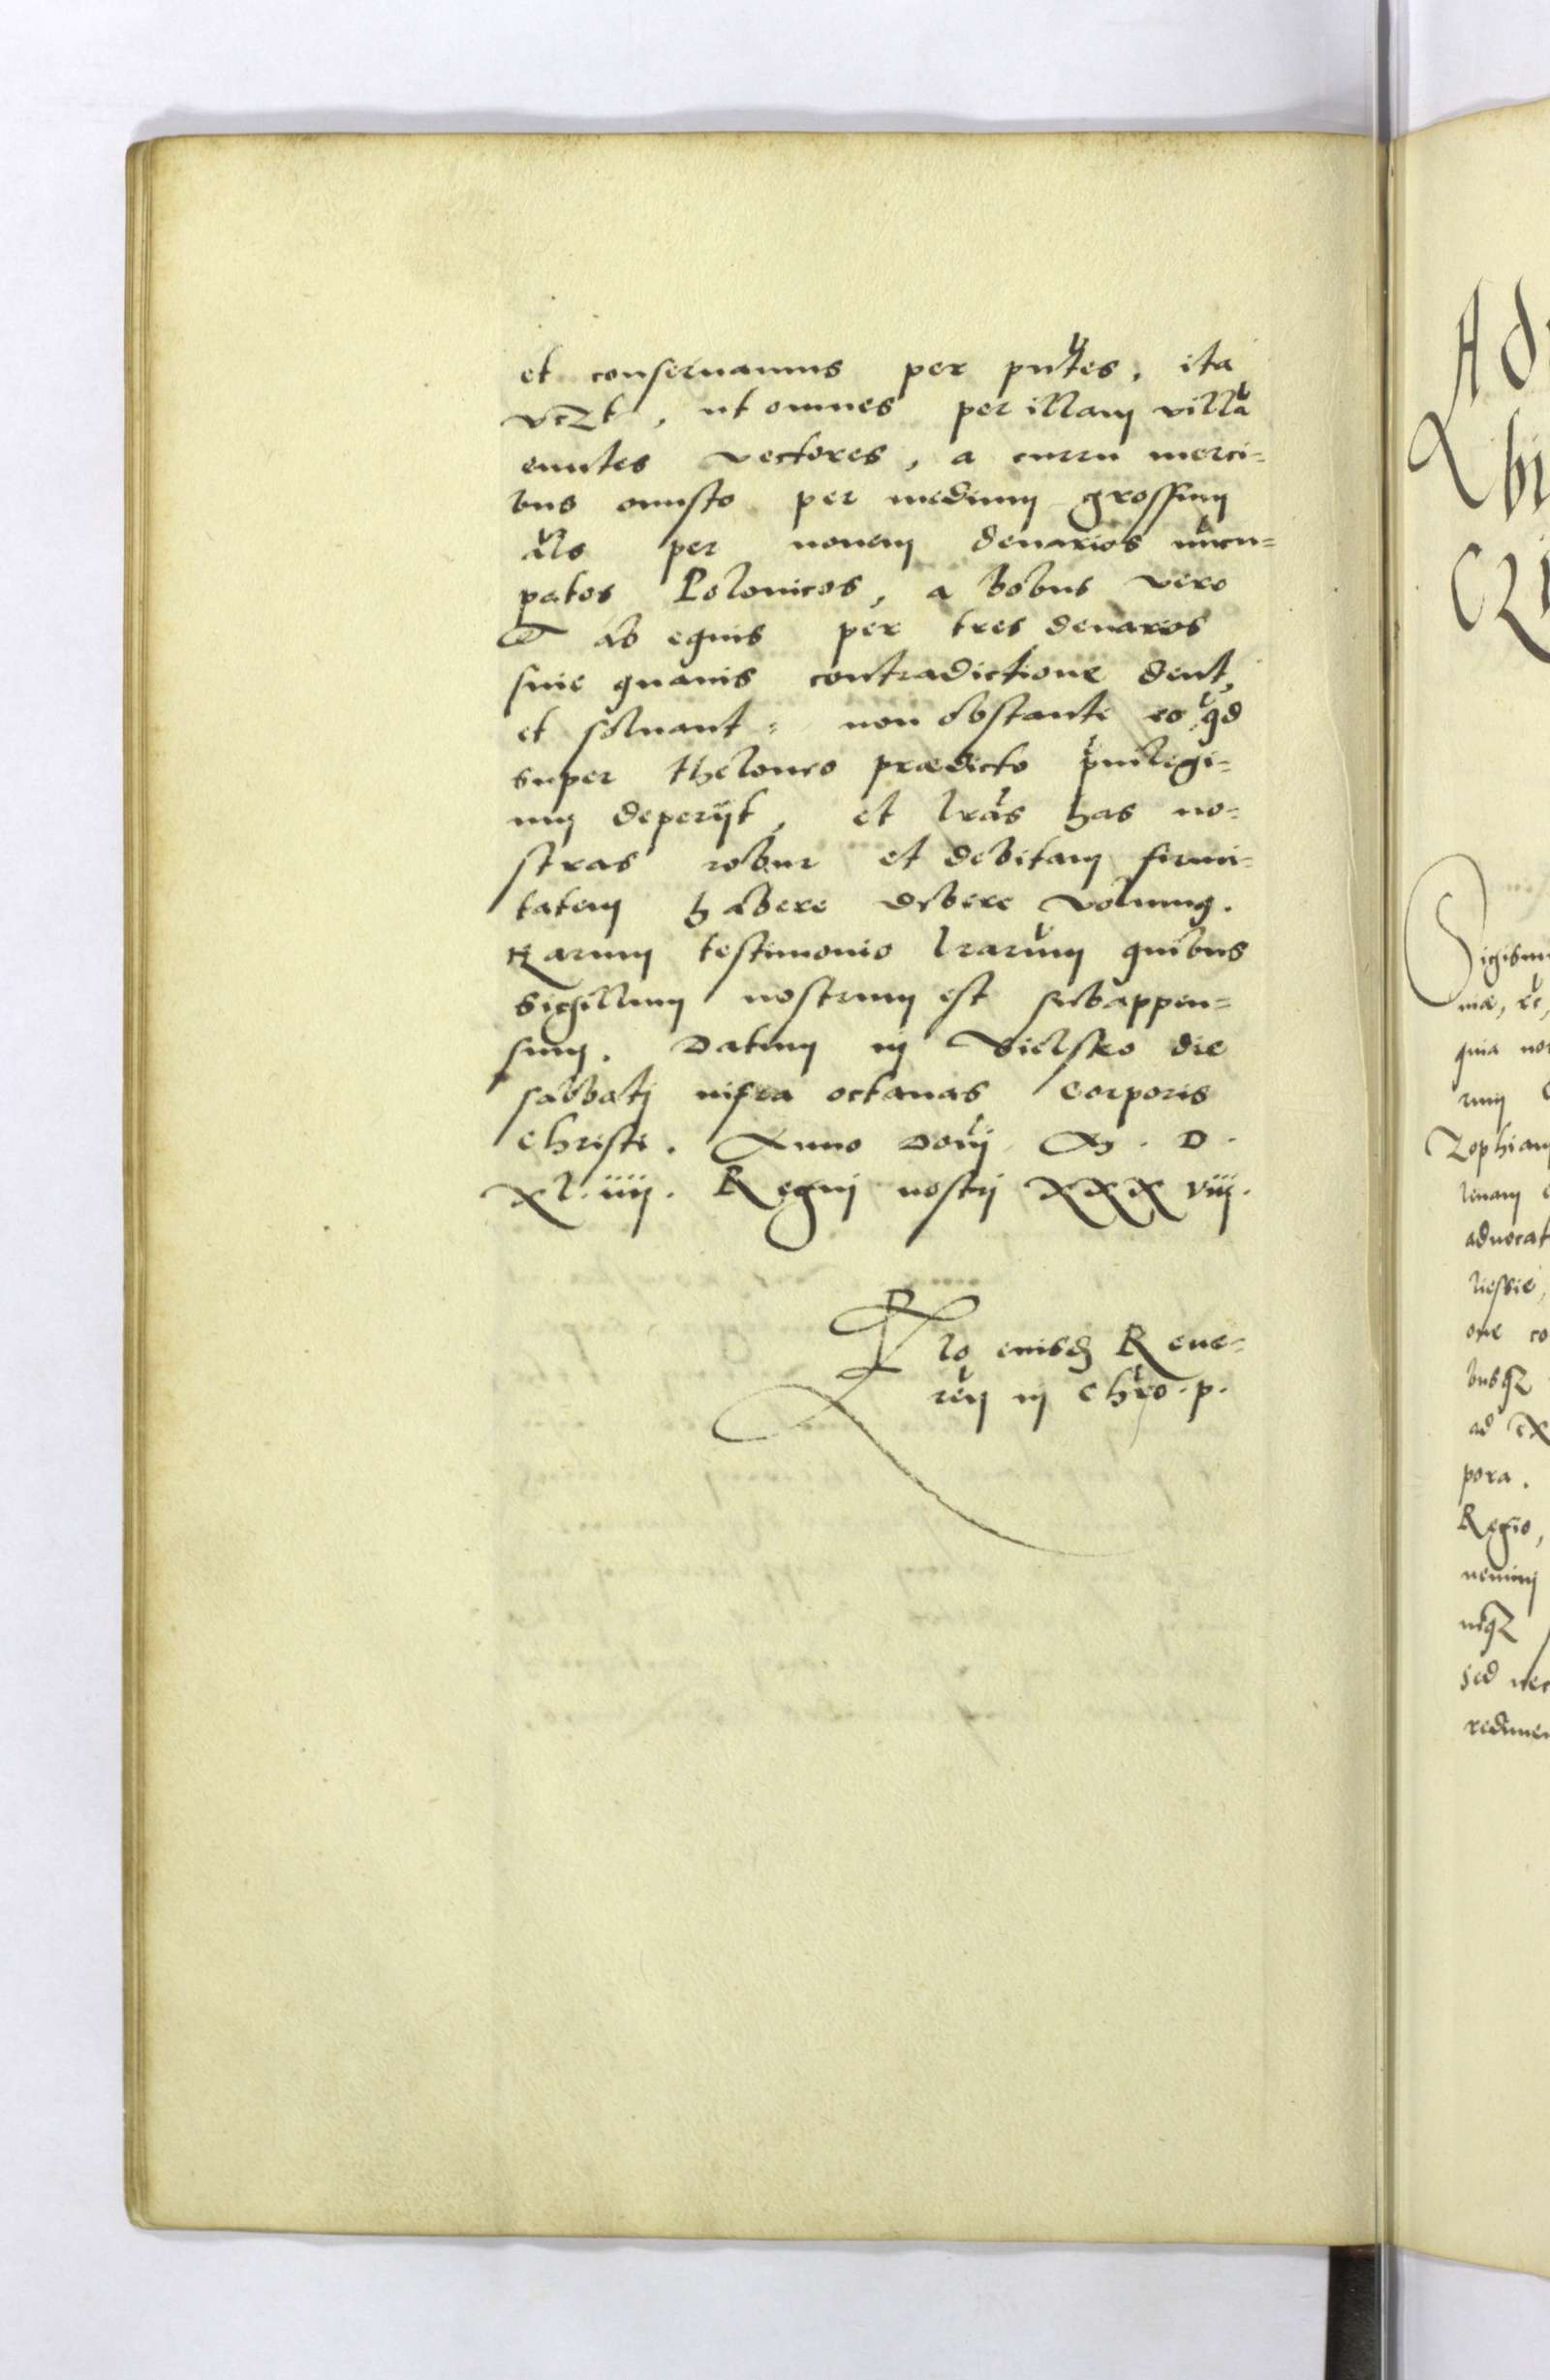 et conseruamus per pntes, ita
vczt, ut omnes per illam villā
euntes vectores, a curru merci=
bus onusto per medium grossum
als per nouem denarios nūcu=
patos Polonicos, a bobus vero
et ab equis per tres denarios
sine quauis contradictione dent,
et soluant: non obstante eo qd
super theloneo prædicto priuilegi=
um deperijt, et lrās has no=
stras robur et debitam firmi=
tatem habere debere volumus.
Harum testimonio lrarum quibus
sigillum nostrum est subappen=
sum. Datum in Bielsko die
sabbati infra octauas Corporis
Christi. Anno Domi M. D.
XLiiij. Regni nostri XXX viij.
Rlo eiusdem Reue=
ren in Chro. p.
Ad
bi
Sigism
niæ, &c,
quia no
rum
Zophiam
lenam
aduocat
liessie,
one co
busqz
ad
pora.
Regio,
nemini
neqz
sed nec
redimen